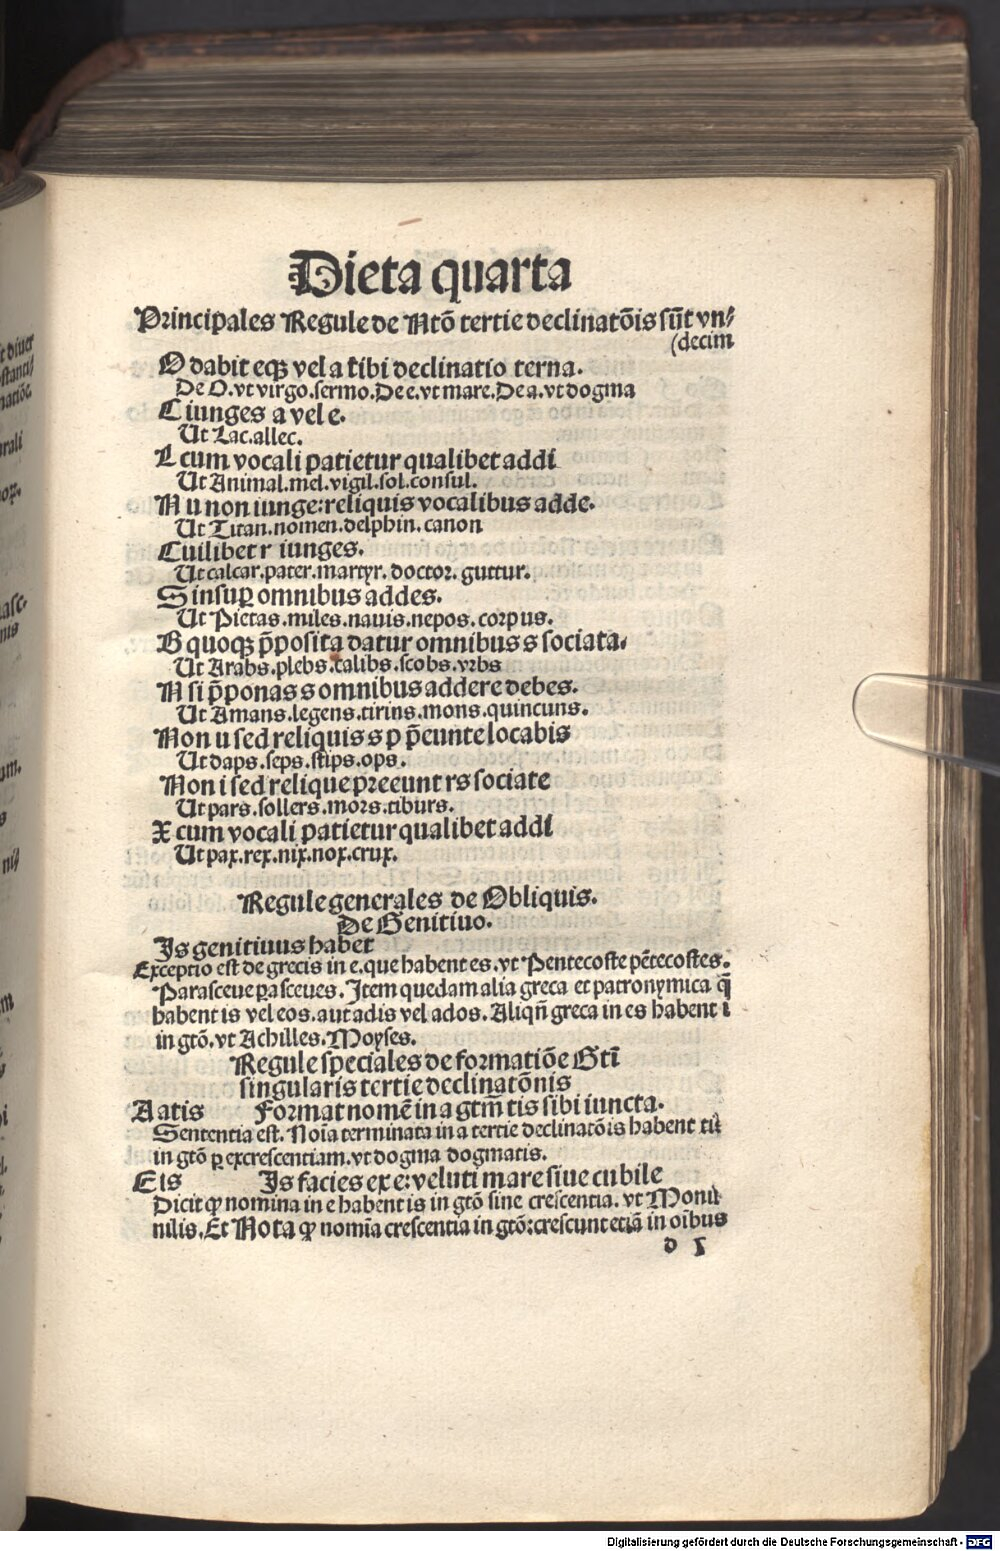 Dieta quarta
Principales Regule de Ntō tertie declinatōis sūt vn⸗
(decim
O dabit eqꝫ vel a tibi declinatio terna.
De O. vt virgo. sermo. De e. vt mare. De a. vt dogma
C iunges a vel e.
Ut Lac. allec.
L cum vocali patietur qualibet addi
Ut Animal. mel. vigil. sol. consul.
N u non iunge: reliquis vocalibus adde.
Ut Titan. nomen. delphin. canon
Cuilibet r iunges.
Ut calcar. pater. martyr. doctor. guttur.
S insuꝑ omnibus addes.
Ut Pietas. miles. nauis. nepos. corpus.
B quoqꝫ p̄posita datur omnibus s sociata.
Ut Arabs. plebs. calibs. scobs. vrbs
N si p̄ponas s omnibus addere debes.
Ut Amans. legens. tirins. mons. quincuns.
Non u sed reliquis s p p̄eunte locabis
Ut daps. seps. stips. ops.
Non i sed relique preeunt rs sociate
Ut pars. sollers. mors. tiburs.
X cum vocali patietur qualibet addi
Ut pax. rex. nix. nox. crux.
Regule generales de Obliquis.
De Genitiuo.
Is genitiuus habet
Exceptio est de grecis in e. que habent es. vt Pentecoste pētecostes.
Parasceue ꝑasceues. Item quedam alia greca et patronymica q̄
habent is vel eos. aut adis vel ados. Aliqn̄ greca in es habent i
in gtō. vt Achilles. Moyses.
Regule speciales de formatiōe Gtī
singularis tertie declinatōnis
A atis Format nomē in a gtm̄ tis sibi iuncta.
Sententia est. Noīa terminata in a tertie declinatōis habent tis
in gtō ꝑ excrescentiam. vt dogma dogmatis.
E is Is facies ex e: veluti mare siue cubile
Dicit ꝙ nomina in e habent is in gtō sine crescentia. vt Monile
nilis. Et Nota ꝙ nomīa crescentia in gtō: crescunt etiā in oībus
d 1
Digitalisierung gefördert durch die Deutsche Forschungsgemeinschaft - DFG